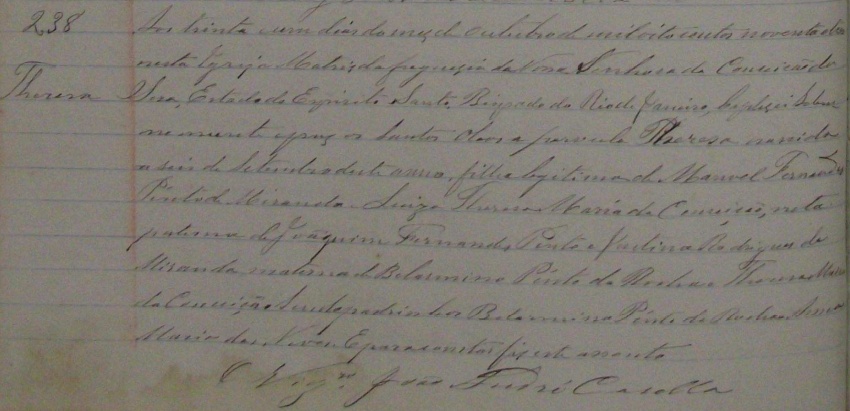 238
Aos trinta e um dias do mez de outubro de mil oito centos noventa e
nesta Igreja Matriz da freguezia de Nossa Senhora da Conceição da
Theresa
Serra, Estado do Espirito Santo, Bispado do Rio de Janeiro, baptisei solem
nemente e puz os Santos Oleos a parvula Theresa nascida
a seis de Setembro deste anno, filha legitima de Manoel Fernandes
Pinto de Miranda e Luiza Theresa Maria da Conceição, neta
paterna de Joaquim Fernandes Pinto e Justina Rodrigues de
Miranda, materna de Belarmino Pinto da Rocha e Theresa Maria
da Conceição. Serviram de padrinhos Belarmino Pinto da Rocha e Anna
Maria das Neves. E para constar fiz este assento
O Vigrº João